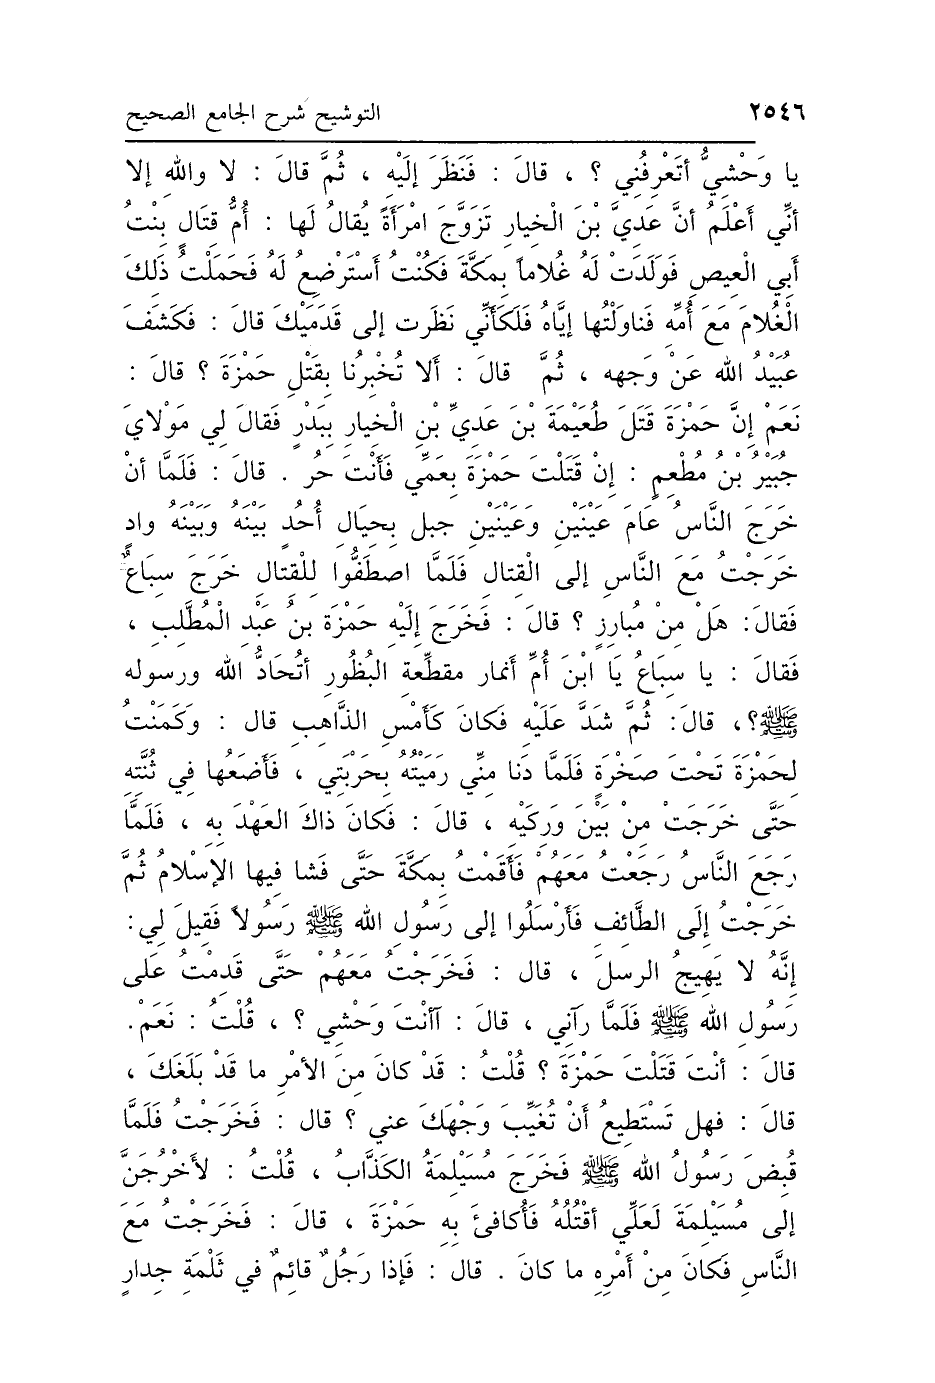 ٢٥٤٦ التوشيح شرح الجامع الصحيح
يا وَحْشِيُّ أتَعْرِفُنِي ؟ ، قالَ : فَنَظَرَ إلَيْهِ ، ثُمَّ قالَ : لا واللهِ إلا
أنِّي أَعْلَمُ أنَّ عَدِيَّ بْنَ الْخيارِ تَزَوَّجَ امْرَأَةً يُقالُ لَها : أُمُّ قتَالٍ بِنْتُ
أَبي الْعيصِ فَوَلَدَتْ لَهُ غُلاماً بِمَكَّةَ فَكُنْتُ أسْتَرْضِعُ لَهُ فَحَمَلْتُ ذَلكَ
الْغُلامَ مَعَ أُمِّهِ فَناوَلْتُها إيَّاهُ فَلَكَأنِّي نَظَرت إلى قَدَمَيْكَ قالَ : فَكَشَفَ
عُبَيْدُ الله عَنْ وَجهه ، ثُمَّ قالَ : أَلا تُخْبِرُنا بِقَتْلِ حَمْزَةَ ؟ قالَ :
نَعَمْ إنَّ حَمْزَةَ قَتَلَ طُعَيْمَةَ بْنَ عَدِيِّ بْنِ الْخيارِ بِبَدْرٍ فَقالَ لِي مَوْلايَ
جُبَيْرُ بْنُ مُطْعِمٍ : إنْ قَتَلْتَ حَمْزَةَ بِعَمِّي فَأنْتَ حُر . قالَ : فَلَمَّا أنْ
خَرَجَ النَّاسُ عَامَ عَيْنَيْنِ وَعَيْنَيْنِ جبل بِحيَالِ أُحُدٍ بَيْنَهُ وَبَيْنَهُ وادٍ
خَرَجْتُ مَعَ النَّاسِ إلى الْقتالِ فَلَمَّا اصطَفُّوا لِلْقِتالِ خَرَجَ سِبَاعٌ
فَقالَ: هَلْ مِنْ مُبارِزٍ ؟ قالَ : فَخَرَجَ إلَيْهِ حَمْزَة بنُ عَبْدِ الْمُطَّلِبِ ،
فَقالَ : يا سِبَاعُ يَا ابْنَ أُمِّ أَنمار مقطِّعة البُظُورِ أتُحَادُّ الله ورسوله
ﷺ؟، قالَ: ثُمَّ شَدَّ عَلَيْهِ فَكانَ كَأَمْسِ الذَّاهِبِ قال : وَكَمَنْتُ
لِحَمْزَةَ تَحْتَ صَخْرَةٍ فَلَمَّا دَنا مِنِّي رَمَيْتُهُ بِحَربْتِي ، فَأَضَعُها فِي ثُنَّتِهِ
حَتَّى خَرَجَتْ مِنْ بَيْنَ وَرِكَيْهِ ، قالَ : فَكانَ ذاكَ العَهْدَ بِهِ ، فَلَمَّا
رَجَعَ النَّاسُ رَجَعْتُ مَعَهُمْ فَأَقَمْتُ بِمَكَّةَ حَتَّى فَشا فِيها الإسْلامُ ثُمَّ
خَرَجْتُ إلَى الطَّائفِ فَأَرْسَلُوا إلى رَسُولِ الله ﷺ رَسُولاً فَقِيلَ لِي:
إنَّهُ لا يَهِيجُ الرسلَ ، قال : فَخَرَجْتُ مَعَهُمْ حَتَّى قَدِمْتُ عَلَى
رَسُولِ الله ﷺ فَلَمَّا رآنِي ، قالَ : آأنْتَ وَحْشِي ؟ ، قُلْتُ : نَعَم.
قالَ : أنْتَ قَتَلْتَ حَمْزَةَ ؟ قُلْتُ : قَدْ كانَ مِنَ الأمْرِ ما قَدْ بَلَغَكَ ،
قالَ : فهل تَسْتَطِيعُ أنْ تُغَيِّبَ وَجْهَكَ عني ؟ قال : فَخَرَجْتُ فَلَمَّا
قُبِضَ رَسُولُ الله ﷺ فَخَرَجَ مُسَيْلِمَةُ الكَذَّابُ ، قُلْتُ : لأَخْرُجَنَّ
إلى مُسَيْلِمَةَ لَعَلِّي أقْتُلُهُ فَأُكافئَ بِهِ حَمْزَةَ ، قالَ : فَخَرَجْتُ مَعَ
النَّاسِ فَكانَ مِنْ أَمْرِهِ ما كانَ . قال : فَإذا رَجُلٌ قائمٌ في ثَلْمَةِ جِدارٍ